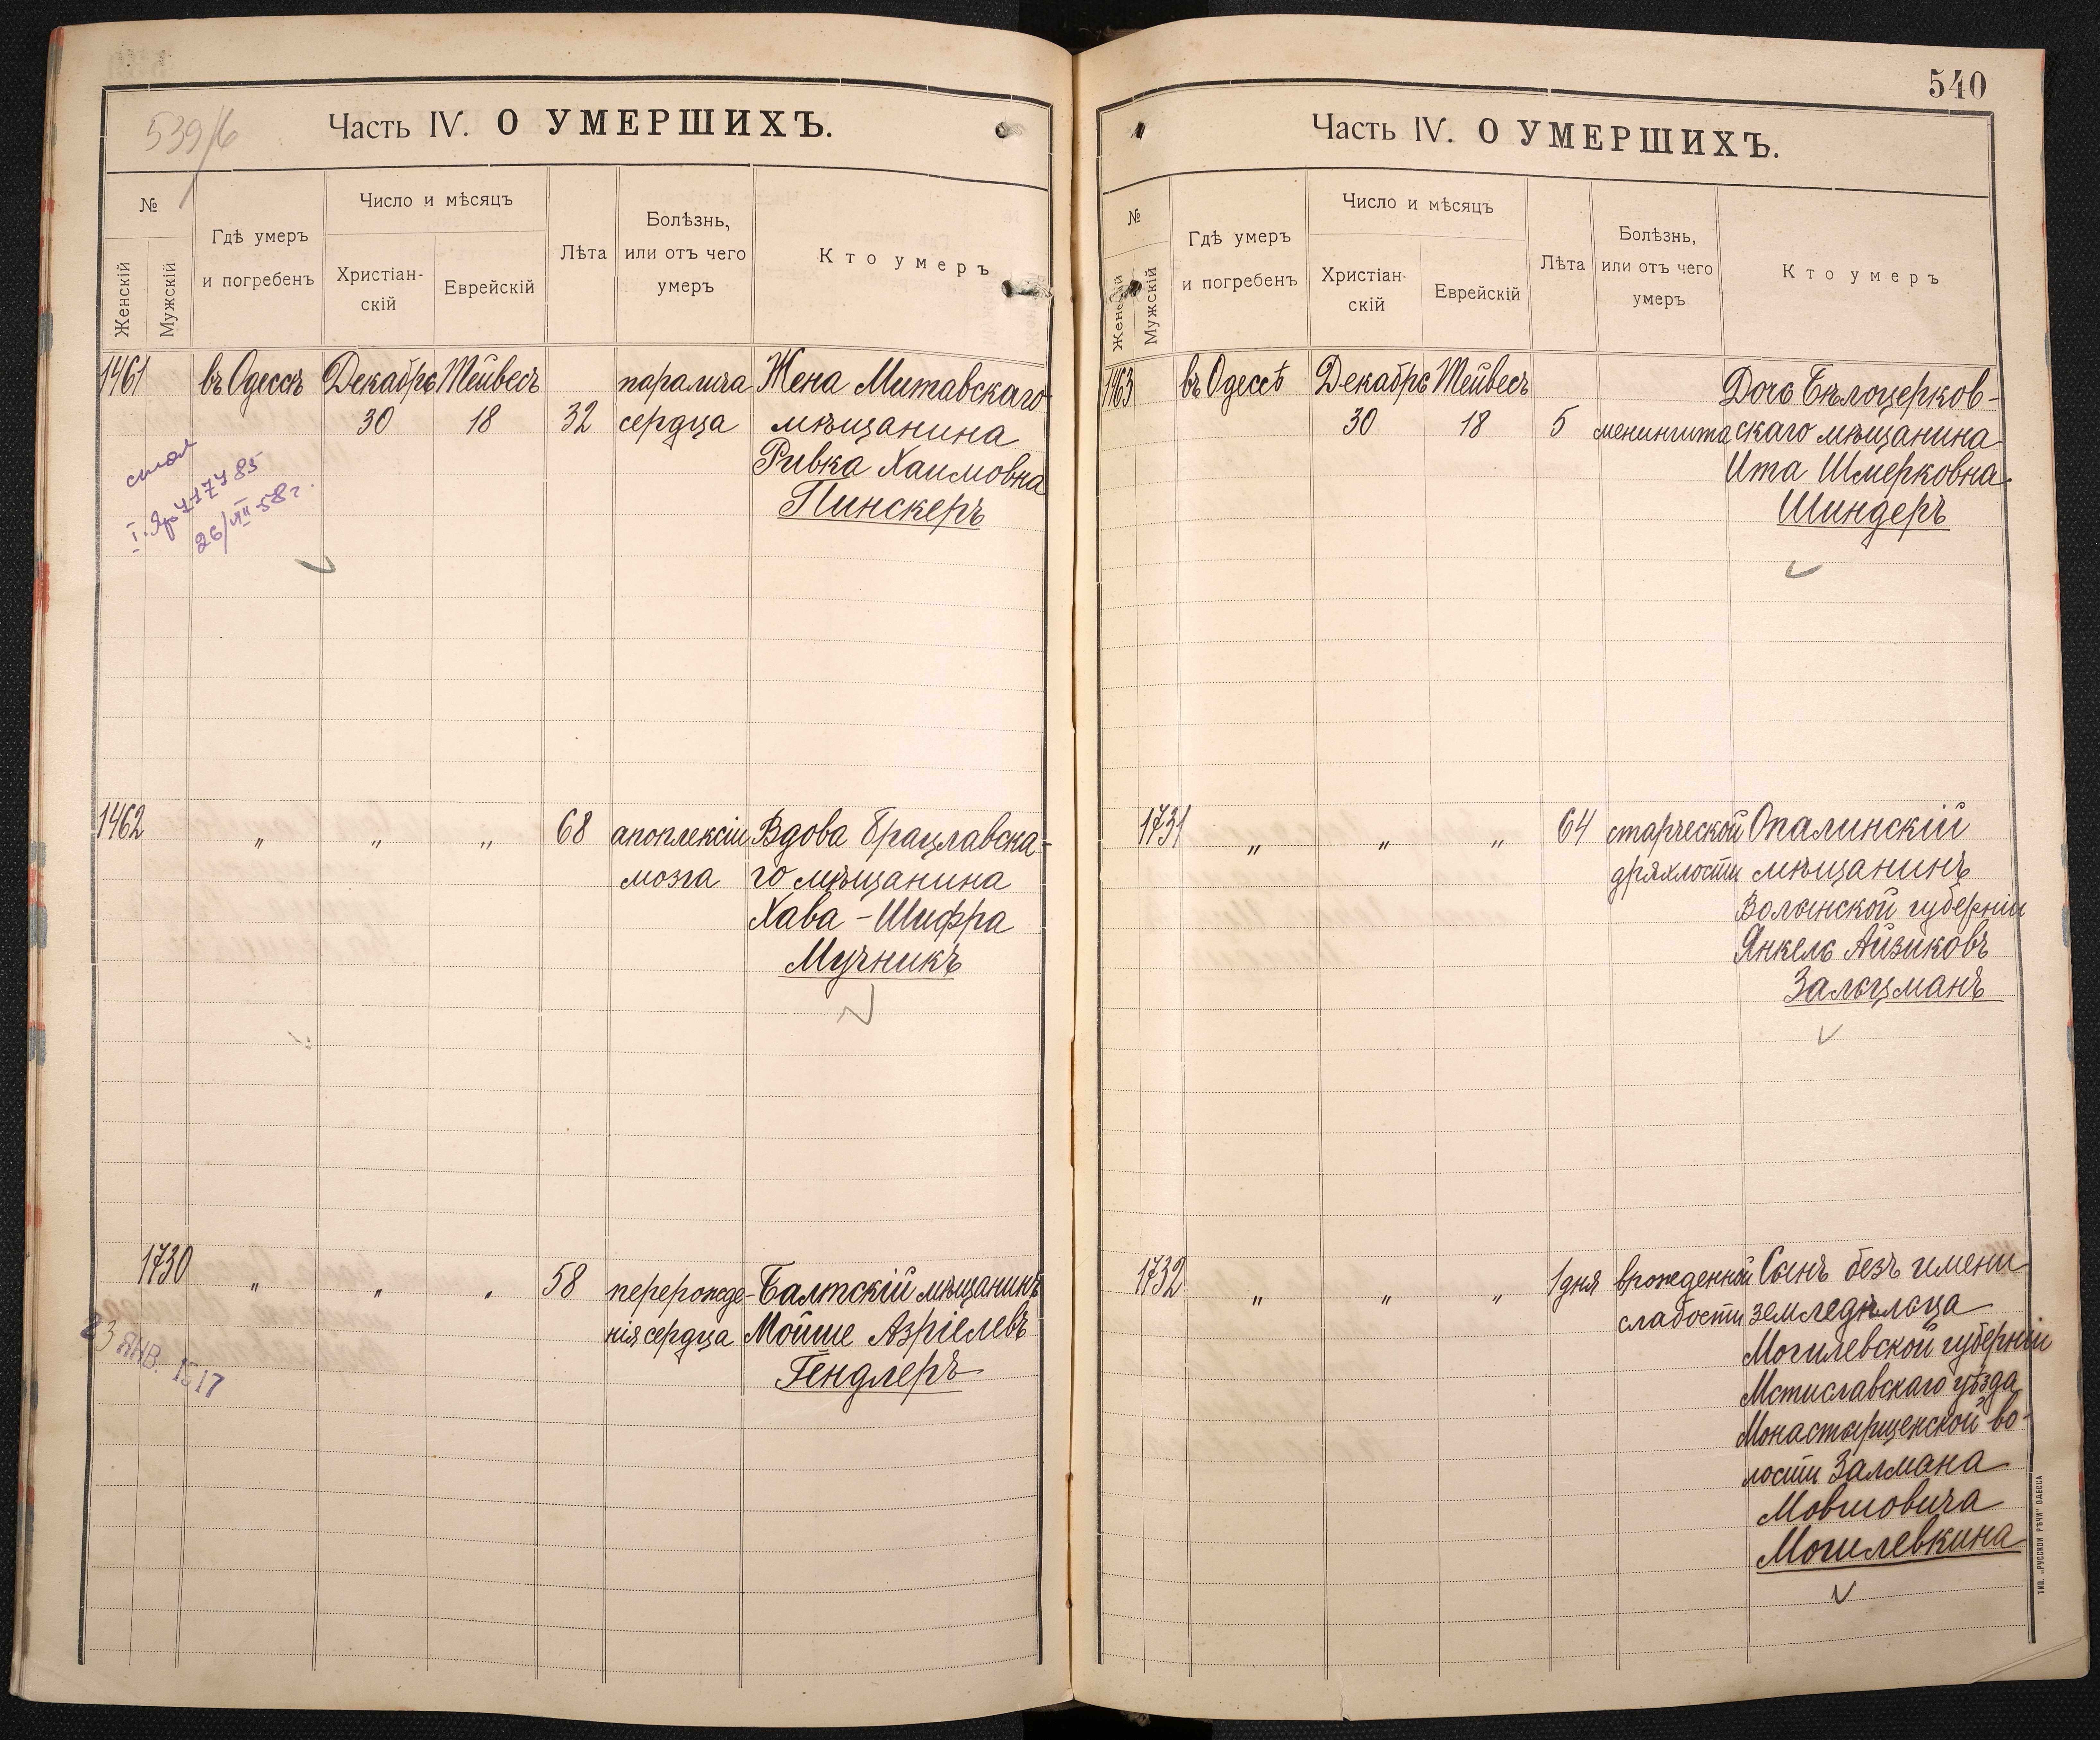 539/б
Часть IV. О УМЕРШИХЪ.
№
Женскій
Мужскій
Гдѣ умеръ
и погребенъ
Число и мѣсяцъ
Христіан-
скій
Еврейскій
Лѣта
Болѣзнь,
или отъ чего
умеръ
Кто умеръ
1461 въ Одессѣ Декабрь Тейвесъ паралича Жена Митавскаго
30 18 32 сердца мѣщанина
Ривка Хаимовна
Пинскеръ
26/VIII 58 г.
1462 " " " 68 апоплексіи Вдова Брацлавска-
мозга го мѣщанина
Хава-Шифра
Мучникъ
1730 " " " 58 перерожде- Балтскій мѣщанинъ
нія сердца Мойше Азріелевъ
Гендлеръ
23 ЯНВ. 1917
540
Часть IV. О УМЕРШИХЪ.
№
Женскій
Мужскій
Гдѣ умеръ
и погребенъ
Число и мѣсяцъ
Христіан-
скій
Еврейскій
Лѣта
Болѣзнь,
или отъ чего
умеръ
Кто умеръ
1463 въ Одессѣ Декабрь Тейвесъ Дочь Бѣлоцерков-
30 18 5 менингита скаго мѣщанина
Ита Шмерковна
Шиндеръ
1731 " " " 64 старческой Опалинскій
дряхлости мѣщанинъ
Волынской губерніи
Янкель Айзиковъ
Зальцманъ
1732 " " " 1 дня врожденной Сынъ безъ имени
слабости земледѣльца
Могилевской губерніи
Мстиславскаго уѣзда
Монастырщенской во-
лости Залмана
Мовшовича
Могилевкина
ТИП. „РУССКОЙ РѢЧИ" ОДЕССА